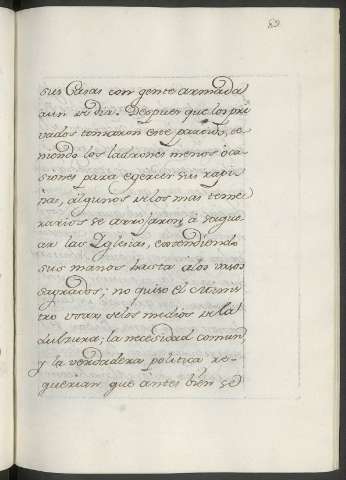 82
sus Casas con gente armada
aun de dia. Despues que los pri
vados tomaron este partido, te
niendo los ladrones menos oca
siones para egercer sus rapi
ñas, algunos de los mas teme
rarios se arrojaron á saque
ar las Yglesias, extendiendo
sus manos hasta á los vasos
sagrados; no quiso el Minis
tro usar de los medios de la
dulzura; la necesidad comun,
y la verdadera politica re-
querian que antes bien se